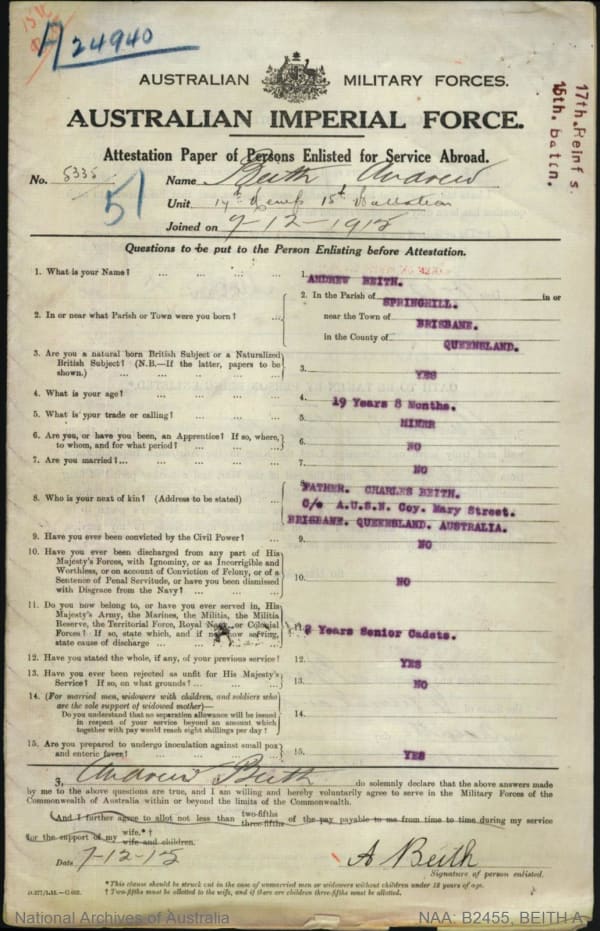 A 24940
AUSTRALIAN MILITARY FORCES.
AUSTRALIAN IMPERIAL FORCE.
17th. Reinf s.
15th. batln.
Attestation Paper of Persons Enlisted for Service Abroad.
No. 5335 Name Beith Andrew
51
Unit 17th Reinfs 15th Battalion
Joined on 7-12-1915
Questions to be put to the Person Enlisting before Attestation.
1. What is your Name? ... 1. ANDREW BEITH.
2. In or near what Parish or Town were you born? ... 2. In the Parish of SPRINGHILL. in or
near the Town of BRISBANE.
in the County of QUEENSLAND.
3. Are you a natural born British Subject or a Naturalized
British Subject? (N.B.—If the latter, papers to be
shown.) ... 3. YES
4. What is your age? ... 4. 19 Years 8 Months.
5. What is your trade or calling? ... 5. MINER
6. Are you, or have you been, an Apprentice? If so, where,
to whom, and for what period? ... 6. NO
7. Are you married?... 7. NO
8. Who is your next of kin? (Address to be stated) ... 8. FATHER. CHARLES BEITH.
C/o A.U.S.N. Coy. Mary Street.
BRISBANE. QUEENSLAND. AUSTRALIA.
9. Have you ever been convicted by the Civil Power? ... 9. NO
10. Have you ever been discharged from any part of His
Majesty's Forces, with Ignominy, or as Incorrigible and
Worthless, or on account of Conviction of Felony, or of a
Sentence of Penal Servitude, or have you been dismissed
with Disgrace from the Navy? ... 10. NO
11. Do you now belong to, or have you ever served in, His
Majesty's Army, the Marines, the Militia, the Militia
Reserve, the Territorial Force, Royal Navy, or Colonial
Forces? If so, state which, and if not now serving,
state cause of discharge ... 11. 2 Years Senior Cadets.
12. Have you stated the whole, if any, of your previous service? 12. YES
13. Have you ever been rejected as unfit for His Majesty's
Service? If so, on what grounds? ... 13. NO
14. (For married men, widowers with children, and soldiers who
are the sole support of widowed mother)—
Do you understand that no separation allowance will be issued
in respect of your service beyond an amount which
together with pay would reach eight shillings per day? 14.
15. Are you prepared to undergo inoculation against small pox
and enteric fever? ... 15. YES
I, Andrew Beith do solemnly declare that the above answers made
by me to the above questions are true, and I am willing and hereby voluntarily agree to serve in the Military Forces of the
Commonwealth of Australia within or beyond the limits of the Commonwealth.
And I further agree to allot not less than two-fifths three-fifths of the pay payable to me from time to time during my service
for the support of my wife.*†
wife and children.
Date 7-12-15 A Beith
Signature of person enlisted.
*This clause should be struck out in the case of unmarried men or widowers without children under 18 years of age.
† Two-fifths must be allotted to the wife, and if there are children three-fifths must be allotted.
National Archives of Australia NAA: B2455, BEITH A